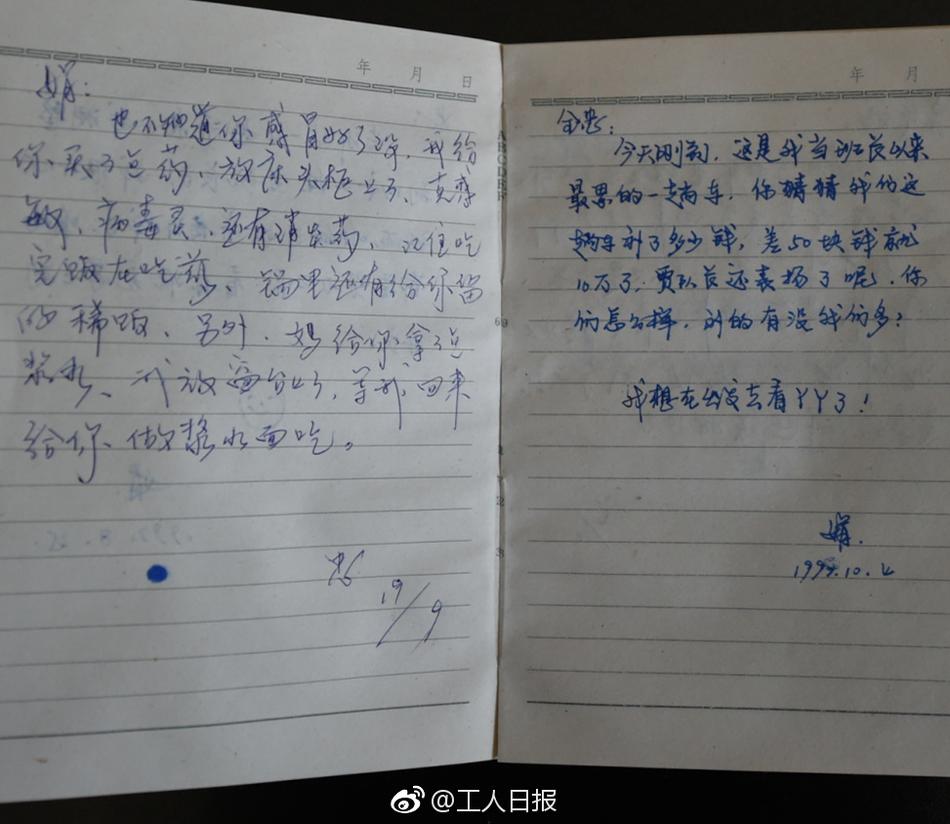 年 月 日
娟：
也不知道你感冒好了没，我给
你买了点药，放床头柜上了，克感
敏、病毒灵，还有消炎药，记住吃
完饭在吃药，锅里还有给你留
的稀饭，另外，妈给你拿了点
浆水，我放窗台上了，等我回来
给你做浆水面吃。
忠
19/9
年 月
全忠：
今天刚到，这是我当班员以来
最累的一趟车，你猜猜我们这
趟车补了多少钱，差50块钱就
10万了，贾队长还表扬了呢，你
们怎么样，补的有没我们多？
我想在出发去看丫丫了！
娟
10.4
@工人日报